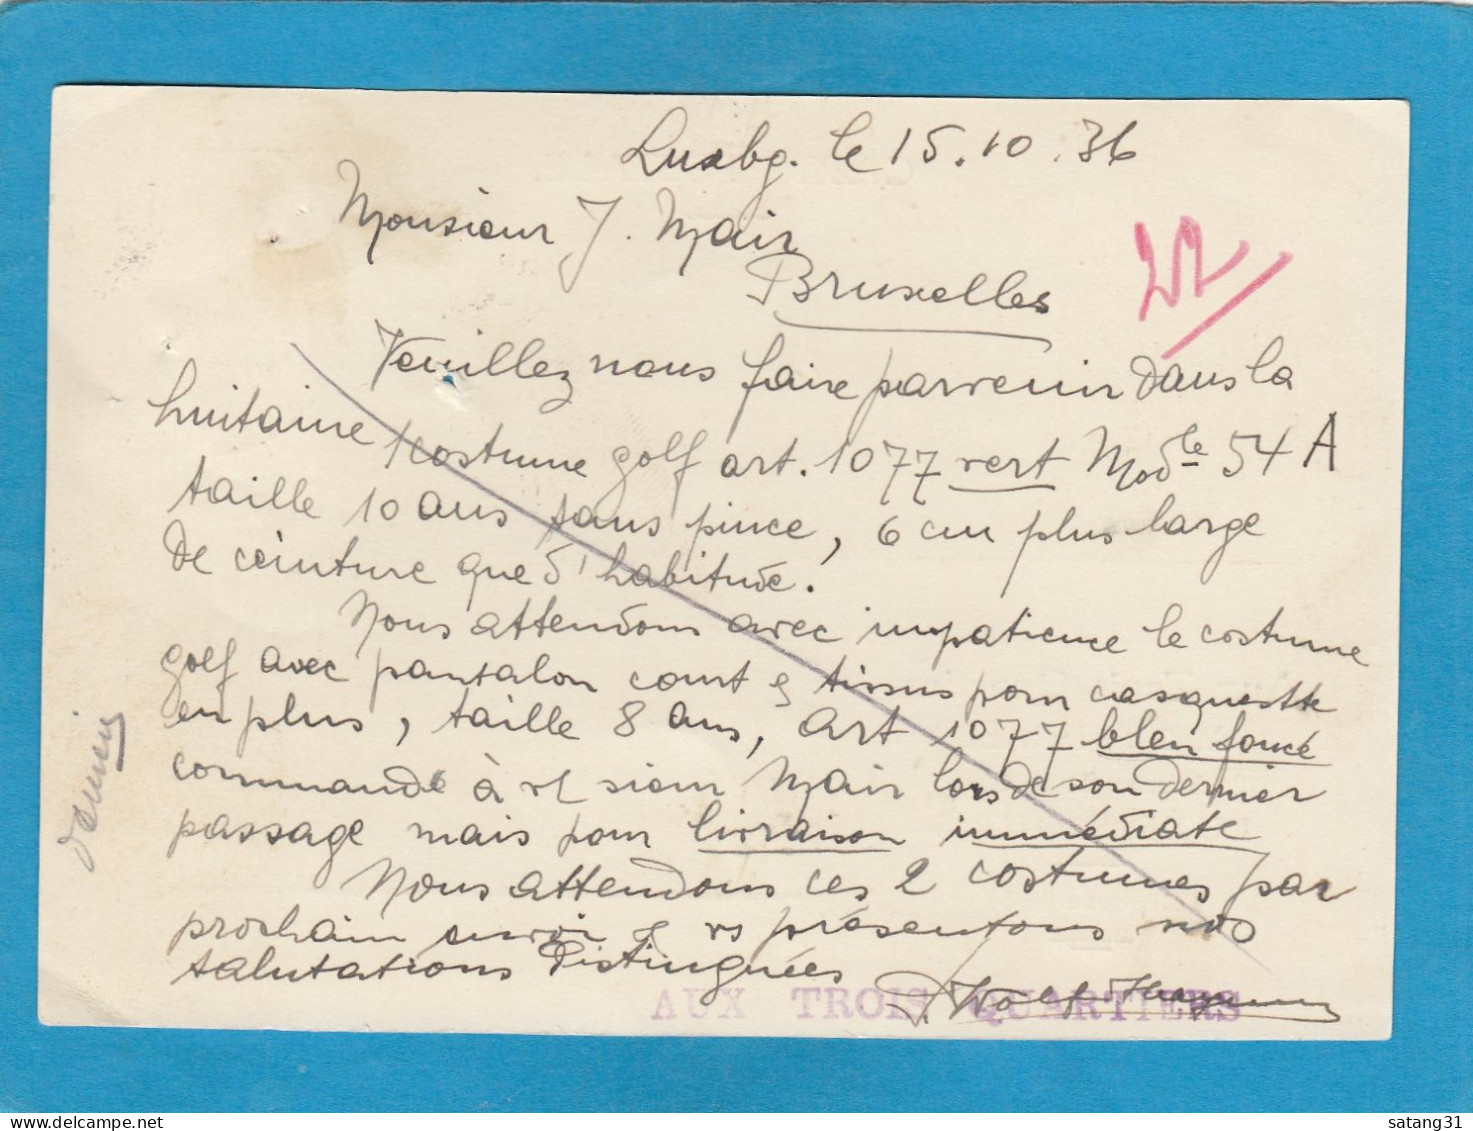 Luxbg. le 15.10.36
Monsieur J. Mair
Bruxelles
Veuillez nous faire parvenir dans la
huitaine 1 costume golf art. 1077 vert Modle 54 A
taille 10 ans sans pince, 6 cm plus large
de ceinture que d'habitude.
Nous attendons avec impatience le costume
golf avec pantalon court & tissus pour casquette
en plus, taille 8 ans, art 1077 bleu foncé
commandé à M sieur Mair lors de son dernier
passage mais pour livraison immédiate
Nous attendons ces 2 costumes par
prochain envoi & vs présentons nos
salutations distinguées
AUX TROIS QUARTIERS
J. Wolf
satang31